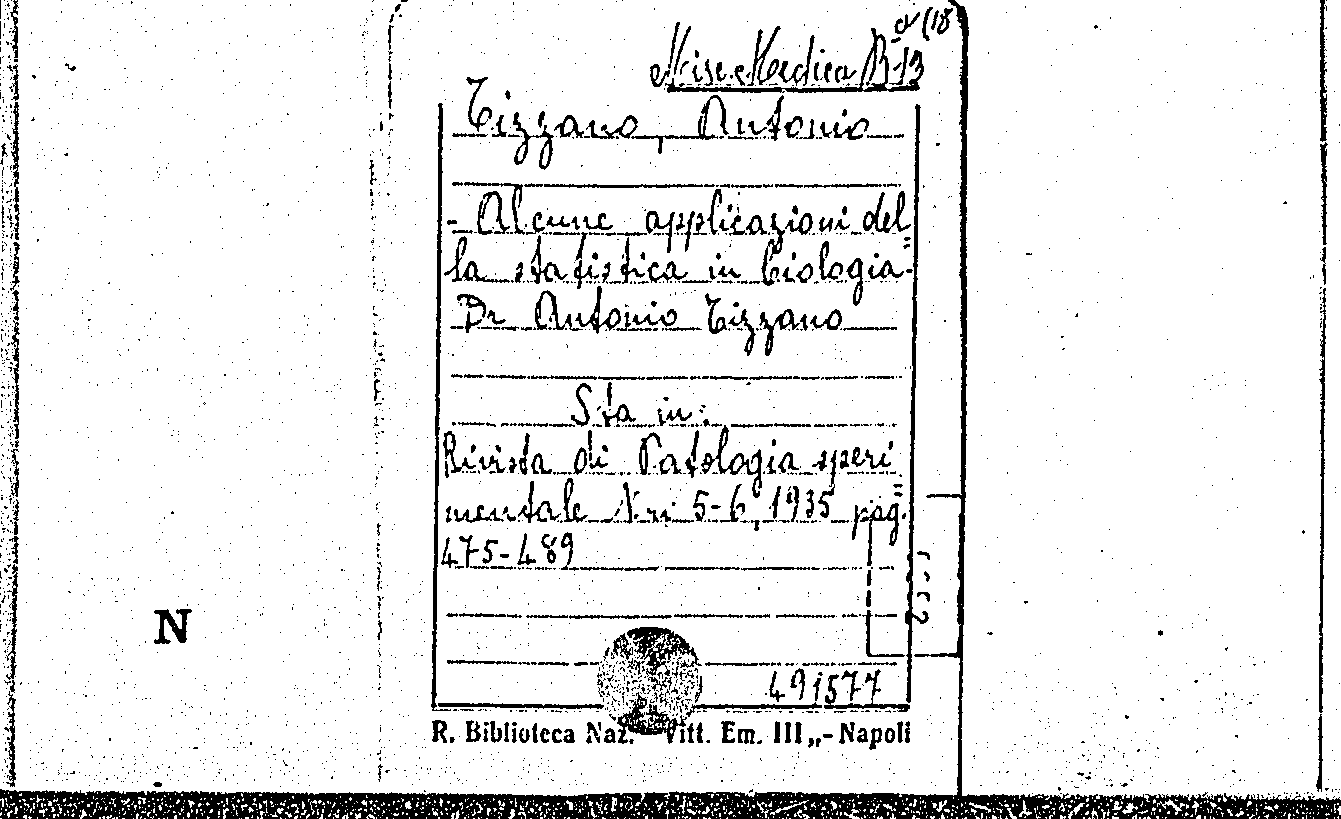 Misc. Medica B-13
d (18
Tizzano, Antonio
- Alcune applicazioni del=
la statistica in biologia-
Dr Antonio Tizzano
Sta in:
Rivista di Patologia speri=
mentale N.ri 5-6, 1935 pag.
475-489
N
491577
R. Biblioteca Naz. Vitt. Em. III „- Napoli